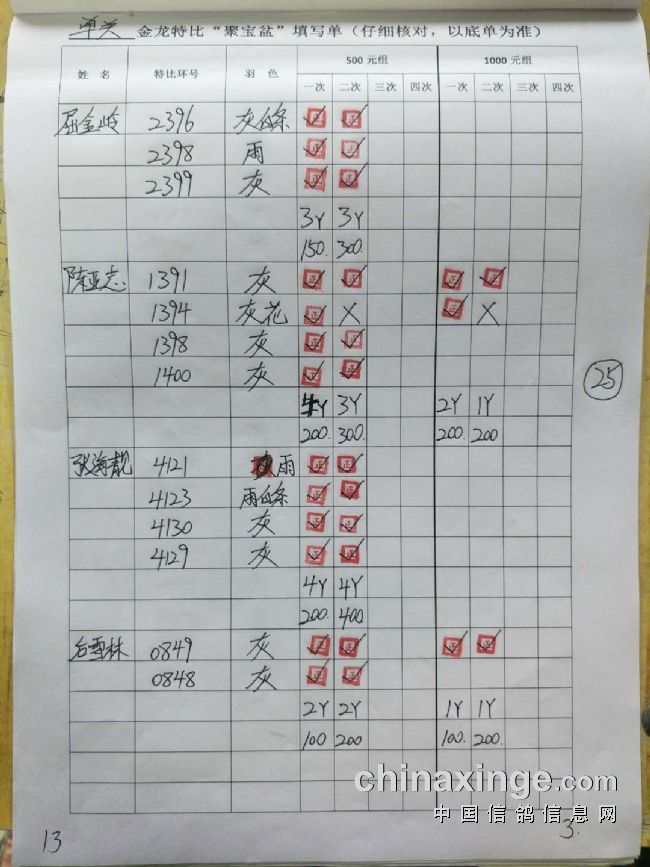 单关 金龙特比“聚宝盆”填写单（仔细核对，以底单为准）
姓 名 特比环号 羽 色 500 元组 1000 元组
一次 二次 三次 四次 一次 二次 三次 四次
屈金岭 2396 灰白条 正 正
2398 雨 正 正
2399 灰 正 正
3Y 3Y
150. 300.
陈亚志 1391 灰 正 正 正 正
1394 灰花 正 X 正 X
1398 灰 正 正
1400 灰 正 正
4Y 3Y 2Y 1Y
200. 300. 200. 200
25
张海靓 4121 雨 正 正
4123 雨白条 正 正
4130 灰 正 正
4129 灰 正 正
4Y 4Y
200. 400
后雪林 0849 灰 正 正 正 正
0848 灰 正 正
2Y 2Y 1Y 1Y
100 200 100. 200.
chinaxinge.com
中国信鸽信息网
13 3.